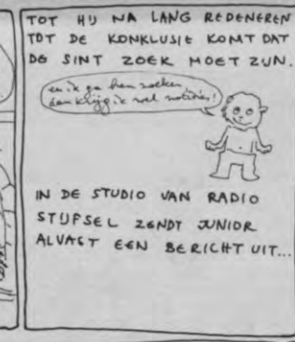 TOT HIJ NA LANG REDENEREN
TOT DE KONKLUSIE KOMT DAT
DE SINT ZOEK MOET ZIJN.
en ik ga hem zoeken
dan krijg ik wel
IN DE STUDIO VAN RADIO
STIJFSEL ZENDT JUNIOR
ALVAST EEN BERICHT UIT...